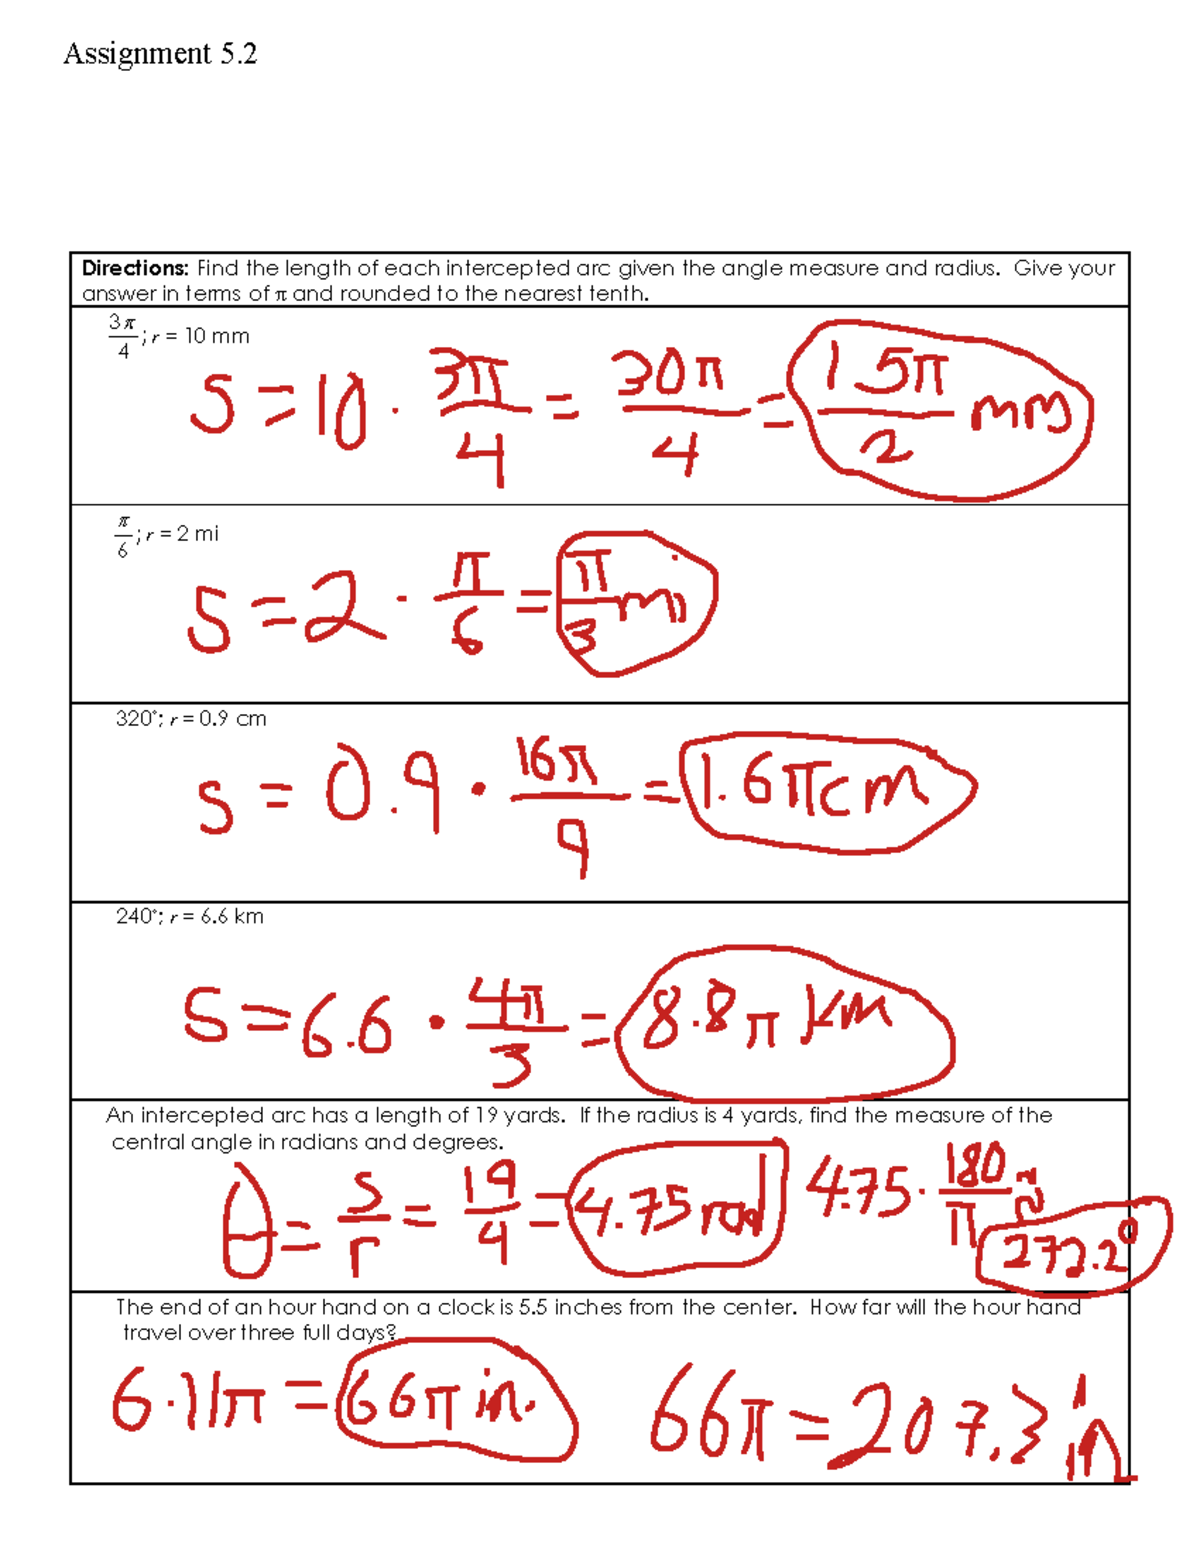 Assignment 5.2
Directions: Find the length of each intercepted arc given the angle measure and radius. Give your
answer in terms of π and rounded to the nearest tenth.
3π/4; r = 10 mm
S = 10 · 3π/4 = 30π/4 = 15π/2 mm
π/6; r = 2 mi
S = 2 · π/6 = π/3 mi
320°; r = 0.9 cm
S = 0.9 · 16π/9 = 1.6π cm
240°; r = 6.6 km
S = 6.6 · 4π/3 = 8.8π km
An intercepted arc has a length of 19 yards. If the radius is 4 yards, find the measure of the
central angle in radians and degrees.
θ = s/r = 19/4 = 4.75 rad 4.75 · 180/π ≈ 272.2°
The end of an hour hand on a clock is 5.5 inches from the center. How far will the hour hand
travel over three full days?
6·11π = 66π in. 66π = 207.3 in